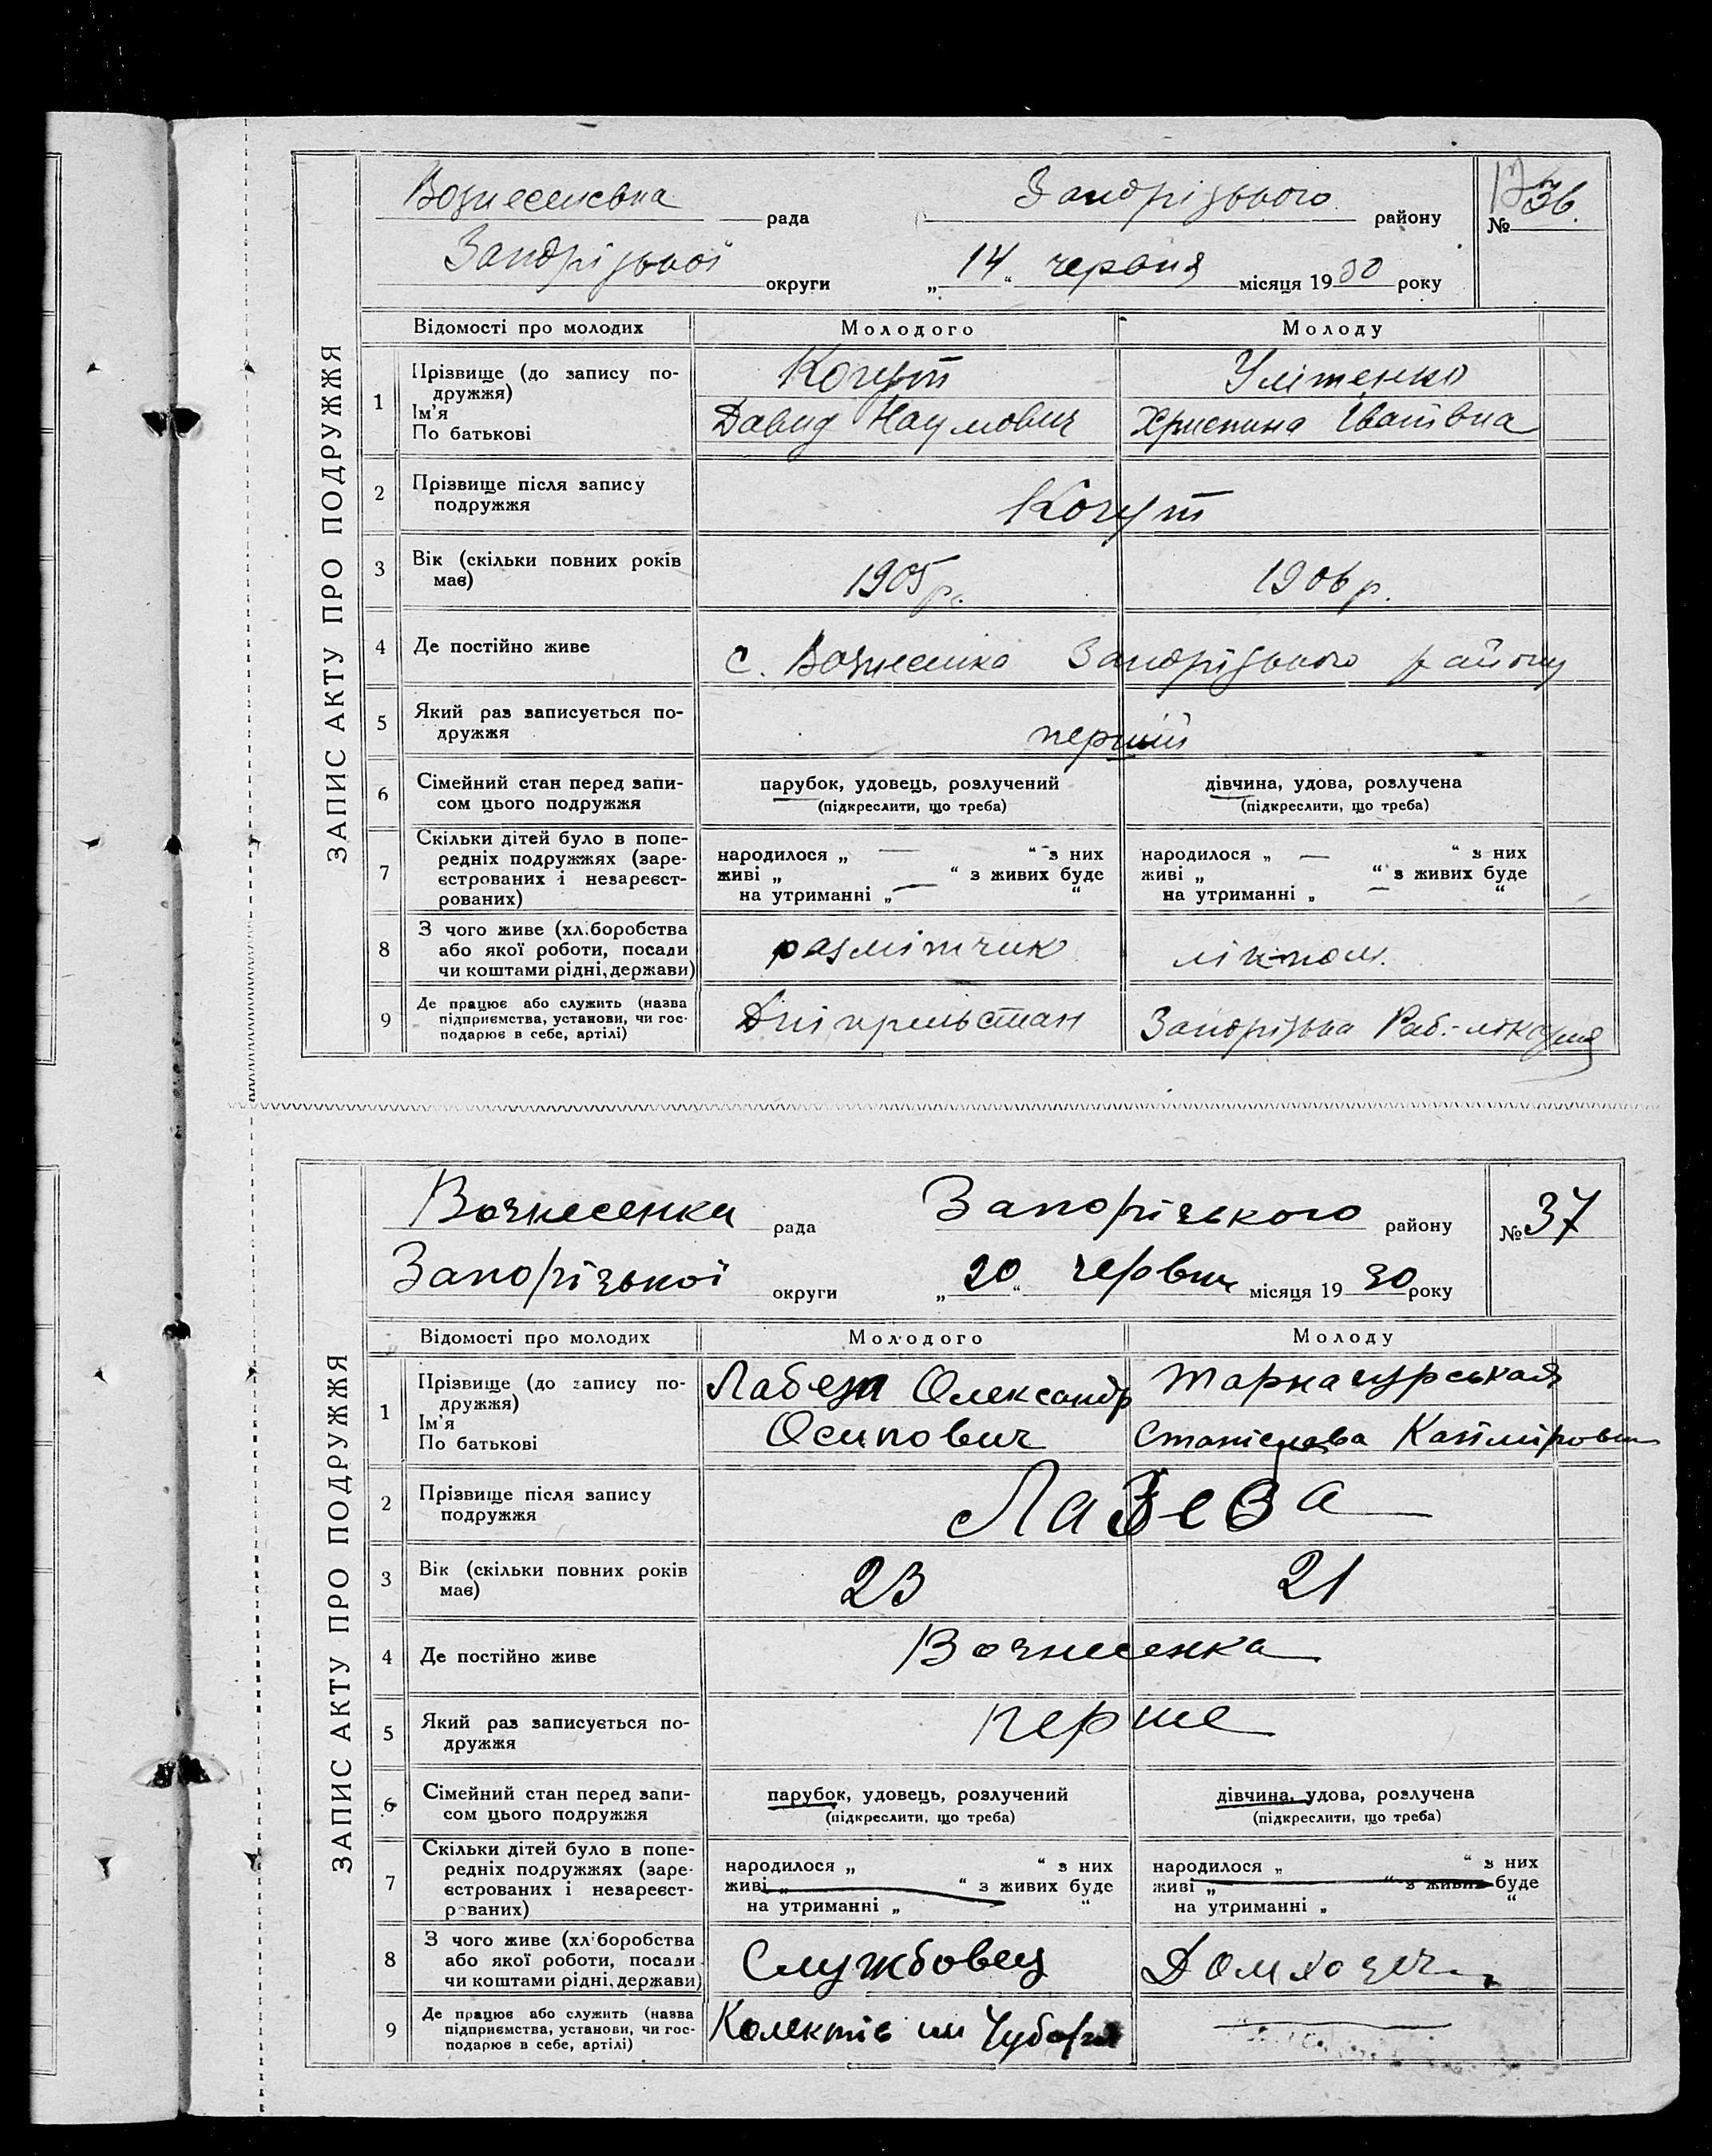 ЗАПИС АКТУ ПРО ПОДРУЖЖЯ
Вознесенська рада Запорізького району № 36.
Запорізької округи „14“ червня місяця 1930 року
Відомості про молодих Молодого Молоду
1 Прізвище (до запису подружжя) Когут Улітенко
Ім'я
По батькові Давид Наумович Христина Іванівна
2 Прізвище після запису подружжя Когут
3 Вік (скільки повних років має) 1905р. 1906р.
4 Де постійно живе с. Вознесенка Запорізького району
5 Який раз записується подружжя перший
6 Сімейний стан перед записом цього подружжя парубок, удовець, розлучений дівчина, удова, розлучена
(підкреслити, що треба) (підкреслити, що треба)
7 Скільки дітей було в попередніх подружжях (зареєстрованих і незареєстрованих)
народилося „ — “ з них народилося „ — “ з них
живі „ “ з живих буде живі „ “ з живих буде
на утриманні „ — “ на утриманні „ — “
8 З чого живе (хліборобства або якої роботи, посади чи коштами рідні, держави) размітчик лікпом.
9 Де працює або служить (назва підприємства, установи, чи господарює в себе, артілі) Запорізька Раб.-
ЗАПИС АКТУ ПРО ПОДРУЖЖЯ
Вознесенка рада Запорізького району № 37
Запорізької округи „20“ червня місяця 1930 року
Відомості про молодих Молодого Молоду
1 Прізвище (до запису подружжя) Олександр
Ім'я
По батькові Осипович Станіслава
2 Прізвище після запису подружжя
3 Вік (скільки повних років має) 23 21
4 Де постійно живе Вознесенка
5 Який раз записується подружжя перше
6 Сімейний стан перед записом цього подружжя парубок, удовець, розлучений дівчина, удова, розлучена
(підкреслити, що треба) (підкреслити, що треба)
7 Скільки дітей було в попередніх подружжях (зареєстрованих і незареєстрованих)
народилося „ “ з них народилося „ “ з них
живі „ “ з живих буде живі „ “ з живих буде
на утриманні „ “ на утриманні „ “
8 З чого живе (хліборобства або якої роботи, посади чи коштами рідні, держави) Службовец Домхозяч.
9 Де працює або служить (назва підприємства, установи, чи господарює в себе, артілі) Колектів им Чубаря —